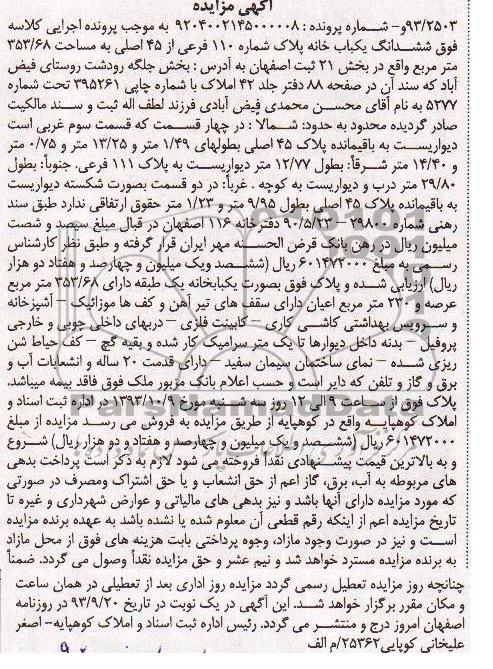 آگهی مزایده
۹۳/۲۵۰۳و- شماره پرونده : ۹۲۰۴۰۰۲۱۴۵۰۰۰۰۰۸ به موجب پرونده اجرایی کلاسه
فوق ششدانگ یکباب خانه پلاک شماره ۱۱۰ فرعی از ۴۵ اصلی به مساحت ۳۵۳/۶۸
متر مربع واقع در بخش ۲۱ ثبت اصفهان به آدرس : بخش جلگه رودشت روستای فیض
آباد که سند آن در صفحه ۸۸ دفتر جلد ۴۲ املاک با شماره چاپی ۳۹۵۲۶۱ تحت شماره
۵۲۷۷ به نام آقای محسن محمدی فیض آبادی فرزند لطف اله ثبت و سند مالکیت
صادر گردیده محدود به حدود: شمالاً : در چهار قسمت که قسمت سوم غربی است
دیواریست به باقیمانده پلاک ۴۵ اصلی بطولهای ۱/۴۹ متر و ۱۳/۲۵ متر و ۰/۷۵ متر
و ۱۴/۴۰ متر شرقاً: بطول ۱۲/۷۷ متر دیواریست به پلاک ۱۱۱ فرعی. جنوباً: بطول
۲۹/۸۰ متر درب و دیواریست به کوچه . غرباً: در دو قسمت بصورت شکسته دیواریست
به باقیمانده پلاک ۴۵ اصلی بطول ۹/۹۵ متر و ۱/۲۳ متر حقوق ارتفاقی ندارد طبق سند
رهنی شماره ۲۹۸۰۰ - ۹۰/۵/۲۳ دفترخانه ۱۱۶ اصفهان در قبال مبلغ سیصد و شصت
میلیون ریال در رهن بانک قرض الحسنه مهر ایران قرار گرفته و طبق نظر کارشناس
رسمی به مبلغ ۶۰۱۴۷۲۰۰۰ ریال (ششصد ویک میلیون و چهارصد و هفتاد دو هزار
ریال) ارزیابی شده و پلاک فوق بصورت یکبابخانه یک طبقه دارای ۳۵۳/۶۸ متر مربع
عرصه و ۲۳۰ متر مربع اعیان دارای سقف های تیر آهن و کف ها موزائیک – آشپزخانه
و سرویس بهداشتی کاشی کاری – کابینت فلزی – دربهای داخلی چوبی و خارجی
پروفیل – بدنه داخل دیوارها تا یک متر سرامیک کار شده و بقیه گچ – کف حیاط شن
ریزی شده – نمای ساختمان سیمان سفید – دارای قدمت ۲۰ ساله و انشعابات آب و
برق و گاز و تلفن که دایر است و حسب اعلام بانک مزبور ملک فوق فاقد بیمه میباشد.
پلاک فوق از ساعت ۹ الی ۱۲ روز سه شنبه مورخ ۱۳۹۳/۱۰/۹ در اداره ثبت اسناد و
املاک کوهپایه واقع در کوهپایه از طریق مزایده به فروش می رسد مزایده از مبلغ
۶۰۱۴۷۲۰۰۰ ریال (ششصد ویک میلیون و چهارصد و هفتاد و دو هزار ریال) شروع
و به بالاترین قیمت پیشنهادی نقداً فروخته می شود لازم به ذکر است پرداخت بدهی
های مربوطه به آب، برق، گاز اعم از حق انشعاب و یا حق اشتراک ومصرف در صورتی
که مورد مزایده دارای آنها باشد و نیز بدهی های مالیاتی و عوارض شهرداری و غیره تا
تاریخ مزایده اعم از اینکه رقم قطعی آن معلوم شده یا نشده باشد به عهده برنده مزایده
است و نیز در صورت وجود مازاد، وجوه پرداختی بابت هزینه های فوق از محل مازاد
به برنده مزایده مسترد خواهد شد و نیم عشر و حق مزایده نقداً وصول می گردد. ضمناً
چنانچه روز مزایده تعطیل رسمی گردد مزایده روز اداری بعد از تعطیلی در همان ساعت
و مکان مقرر برگزار خواهد شد. این آگهی در یک نوبت در تاریخ ۹۳/۹/۲۰ در روزنامه
اصفهان امروز درج و منتشر می گردد. رئیس اداره ثبت اسناد و املاک کوهپایه- اصغر
علیخانی کوپایی۲۵۳۶۲/م الف
ParsNamadData